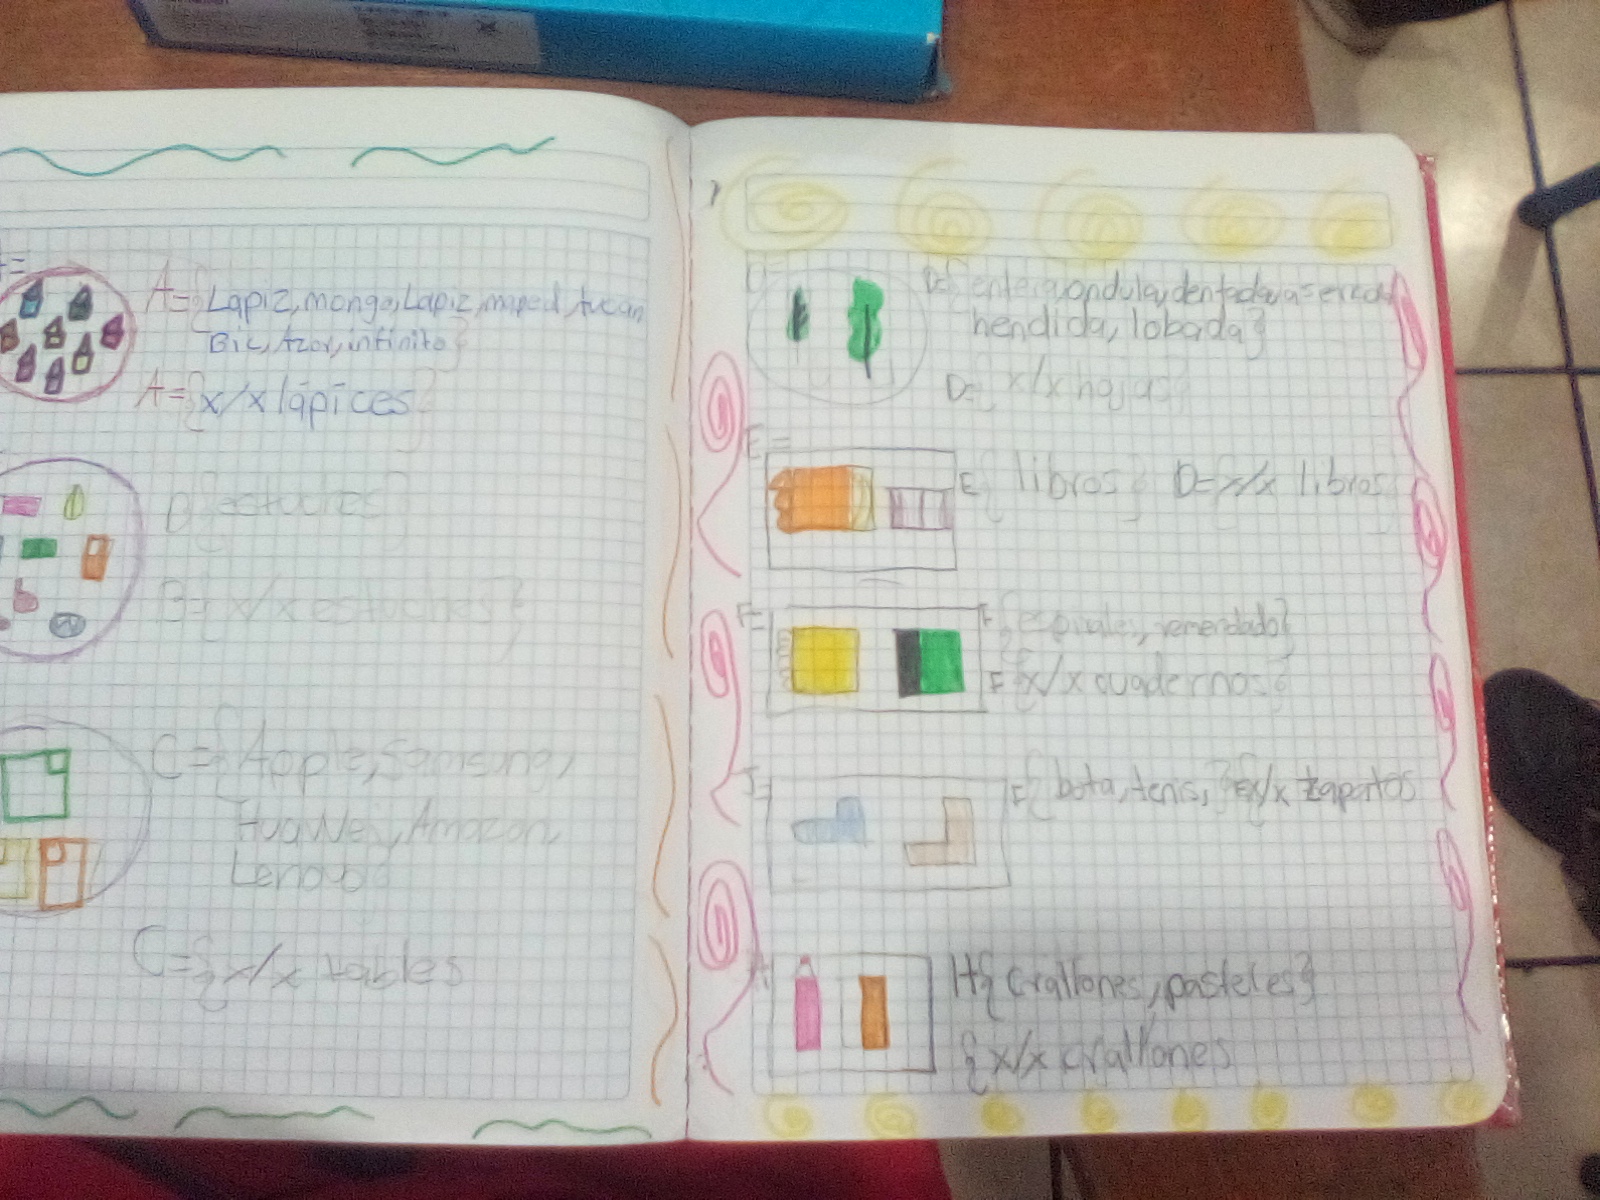 A={Lapiz, mongo, Lapiz, maped, tucan
Bic, Azor, infinito}
A={x/x lápices}
B{estuches}
B={x/x estuches}
C={Apple, Samsung,
Huawei, Amazon,
Lenovo}
C={x/x tables
D={entera, ondula, dentada, aserrada
hendida, lobada}
D={x/x hojas}
E=
E{libros} D={x/x libros
F=
F{espirales, remendado}
F{x/x cuadernos}
J=
F{bota, tenis,} {x/x zapatos
H{Crallones, pasteles}
{x/x crallones